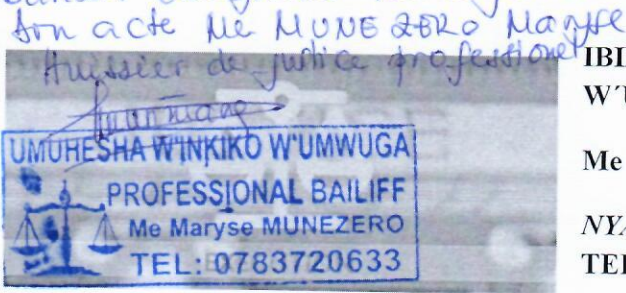 ton acte Me MUNEZERO Maryse
Huissier de justice professionel
IBI
W'U
UMUHESHA W'INKIKO W'UMWUGA
PROFESSIONAL BAILIFF
Me
Me Maryse MUNEZERO
NYA
TEL: 0783720633
TEL